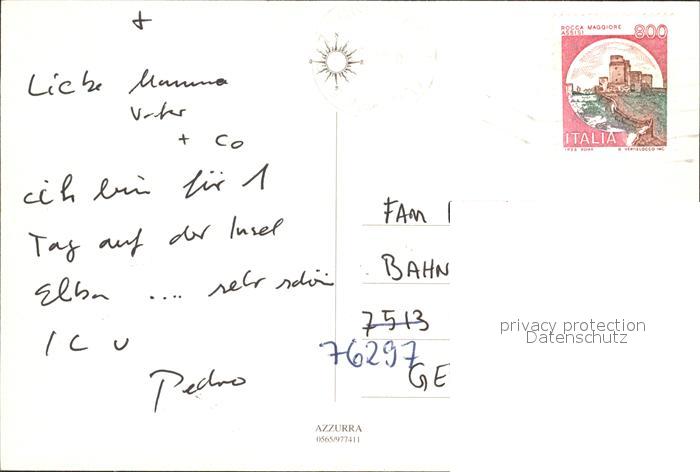 +
Liebe Mamma
Vater
+ Co
ich bin für 1
Tag auf der Insel
Elba .... sehr schön
I C U
Pedro
ROCCA MAGGIORE
ASSISI
800
ITALIA
FAM
BAHN
7513
76297
GE
privacy protection
Datenschutz
AZZURRA
0565/977411